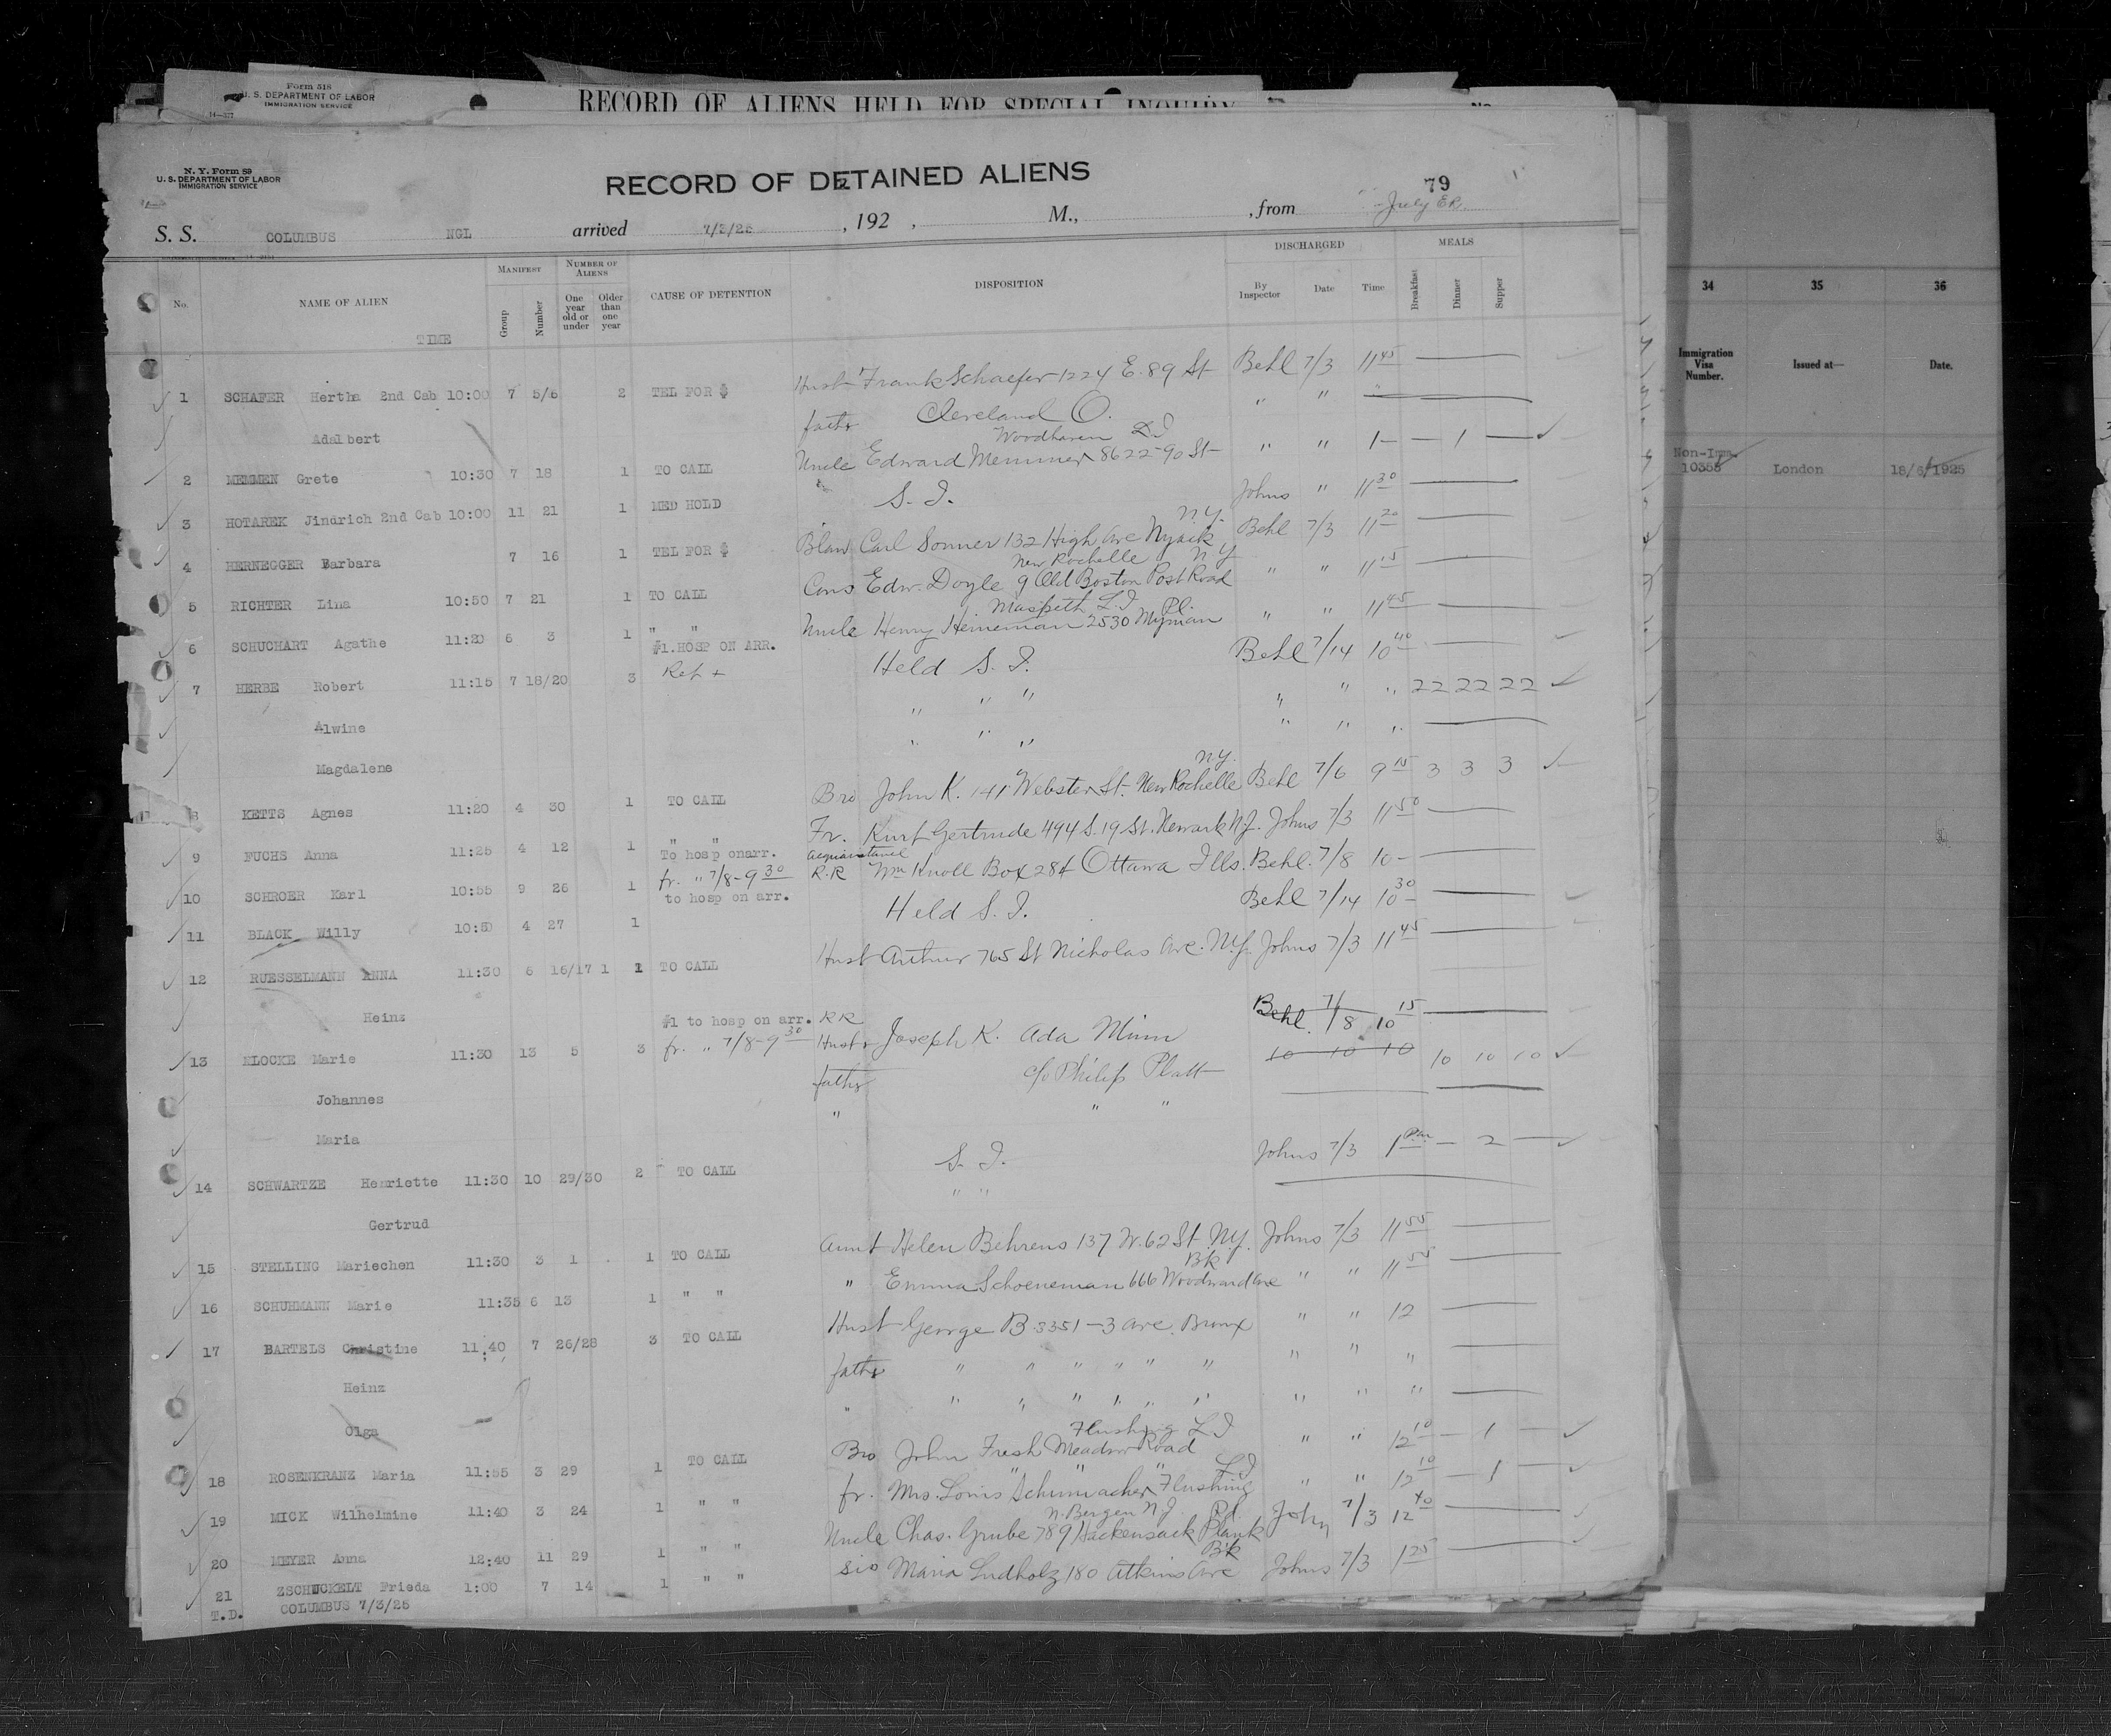 Form 518
U. S. DEPARTMENT OF LABOR
IMMIGRATION SERVICE
14—377
RECORD OF ALIENS HELD FOR SPECIAL INQUIRY
No.
N. Y. Form 59
U. S. DEPARTMENT OF LABOR
IMMIGRATION SERVICE
RECORD OF DETAINED ALIENS
79
S. S. COLUMBUS NGL arrived 7/3/25, 192 , M., , from
No. NAME OF ALIEN TIME MANIFEST Group Number NUMBER OF ALIENS One year old or under Older than one year CAUSE OF DETENTION DISPOSITION DISCHARGED By Inspector Date Time MEALS Breakfast Dinner Supper
1 SCHAFER Hertha 2nd Cab 10:00 7 5/6 2 TEL FOR $ Husb Frank Schaefer 1224 E. 89 St Behl 7/3 11 45
Adalbert fathr Cleveland O. " " "
2 MEMMEN Grete 10:30 7 18 1 TO CALL Uncle Edward Memmen 8622-90 St Woodhaven L I " " 1 — — 1 —
3 HOTAREK Jindrich 2nd Cab 10:00 11 21 1 MED HOLD S. I. Johns " 11 30
4 HERNEGGER Barbara 7 16 1 TEL FOR $ Carl Sonner 132 High Ave Nyack N.Y. Behl 7/3 11 20
5 RICHTER Lina 10:50 7 21 1 TO CALL Cous Edw. Doyle 9 Old Boston Post Road New Rochelle N Y " " 11 15
6 SCHUCHART Agathe 11:20 6 3 1 " " Uncle Henry Heineman 2530 Pl. Maspeth L. I " " 11 45
7 HERBE Robert 11:15 7 18/20 3 #1. HOSP ON ARR. Held S. I. Behl 7/14 10 40
Alwine " " " " " " 22 22 22
Magdalene " " " " " "
8 KETTS Agnes 11:20 4 30 1 TO CALL Bro John K. 141 Webster St. New Rochelle N.Y. Behl 7/6 9 15 3 3 3
9 FUCHS Anna 11:25 4 12 1 " " Fr. Kurt Gertrude 494 S. 19 St. Newark N.J. Johns 7/3 11 50
10 SCHROER Karl 10:55 9 26 1 To hosp onarr. fr. " 7/8-9 30 acquaintance R.R Wm Knoll Box 284 Ottawa Ills. Behl. 7/8 10 —
11 BLACK Willy 10:50 4 27 1 to hosp on arr. Held S. I. Behl 7/14 10 30
12 RUESSELMANN ANNA 11:30 6 16/17 1 1 TO CALL Husb Arthur 765 St Nicholas Ave. N.Y. Johns 7/3 11 45
Heinz
13 KLOCKE Marie 11:30 13 5 3 #1 to hosp on arr. fr. " 7/8-9 30 RR Husb Joseph K. Ada Minn Behl. 7/8 10 15
Johannes fathr c/o Philip Platt 10 10 10 10 10 10
Maria " " "
14 SCHWARTZE Henriette 11:30 10 29/30 2 TO CALL S. I. Johns 7/3 1 PM — 2 —
Gertrud " "
15 STELLING Mariechen 11:30 3 1 1 TO CALL Aunt Helen Behrens 137 W. 62 St. N.Y. Johns 7/3 11 55
16 SCHUHMANN Marie 11:35 6 13 1 " " " Emma Schoeneman 666 Woodward Ave Bk " " 11 55
17 BARTELS Christine 11.40 7 26/28 3 TO CALL Husb George B. 3351-3 Ave. Bronx " " 12
Heinz fathr " " " " " " " " "
Olga " " " " " " " " " "
18 ROSENKRANZ Maria 11:55 3 29 1 TO CALL Bro John Fresh Meadow Road Flushing L I " " 12 10 — 1 —
19 MICK Wilhelmine 11:40 3 24 1 " " fr. Mrs. Louis Schumacher Flushing L I " " 12 10 — 1 —
20 MEYER Anna 12:40 11 29 1 " " Uncle Chas. Grube 789 Hackensack Plank Rd. N. Bergen N J. John 7/3 12 40
21 ZSCHUCKELT Frieda 1:00 7 14 1 " " Sis Maria Ludholz 180 Atkins Ave Bk Johns 7/3 1 25
T.D. COLUMBUS 7/3/25
34 35 36
Immigration Visa Number. Issued at— Date.
Non-Imm. 10358 London 18/6/1925